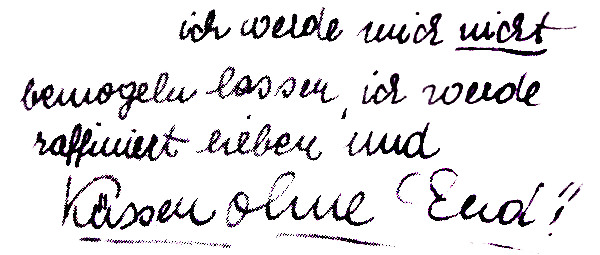 ich werde mich nicht
bemogeln lassen, ich werde
raffiniert lieben und
Küssen ohne End!"